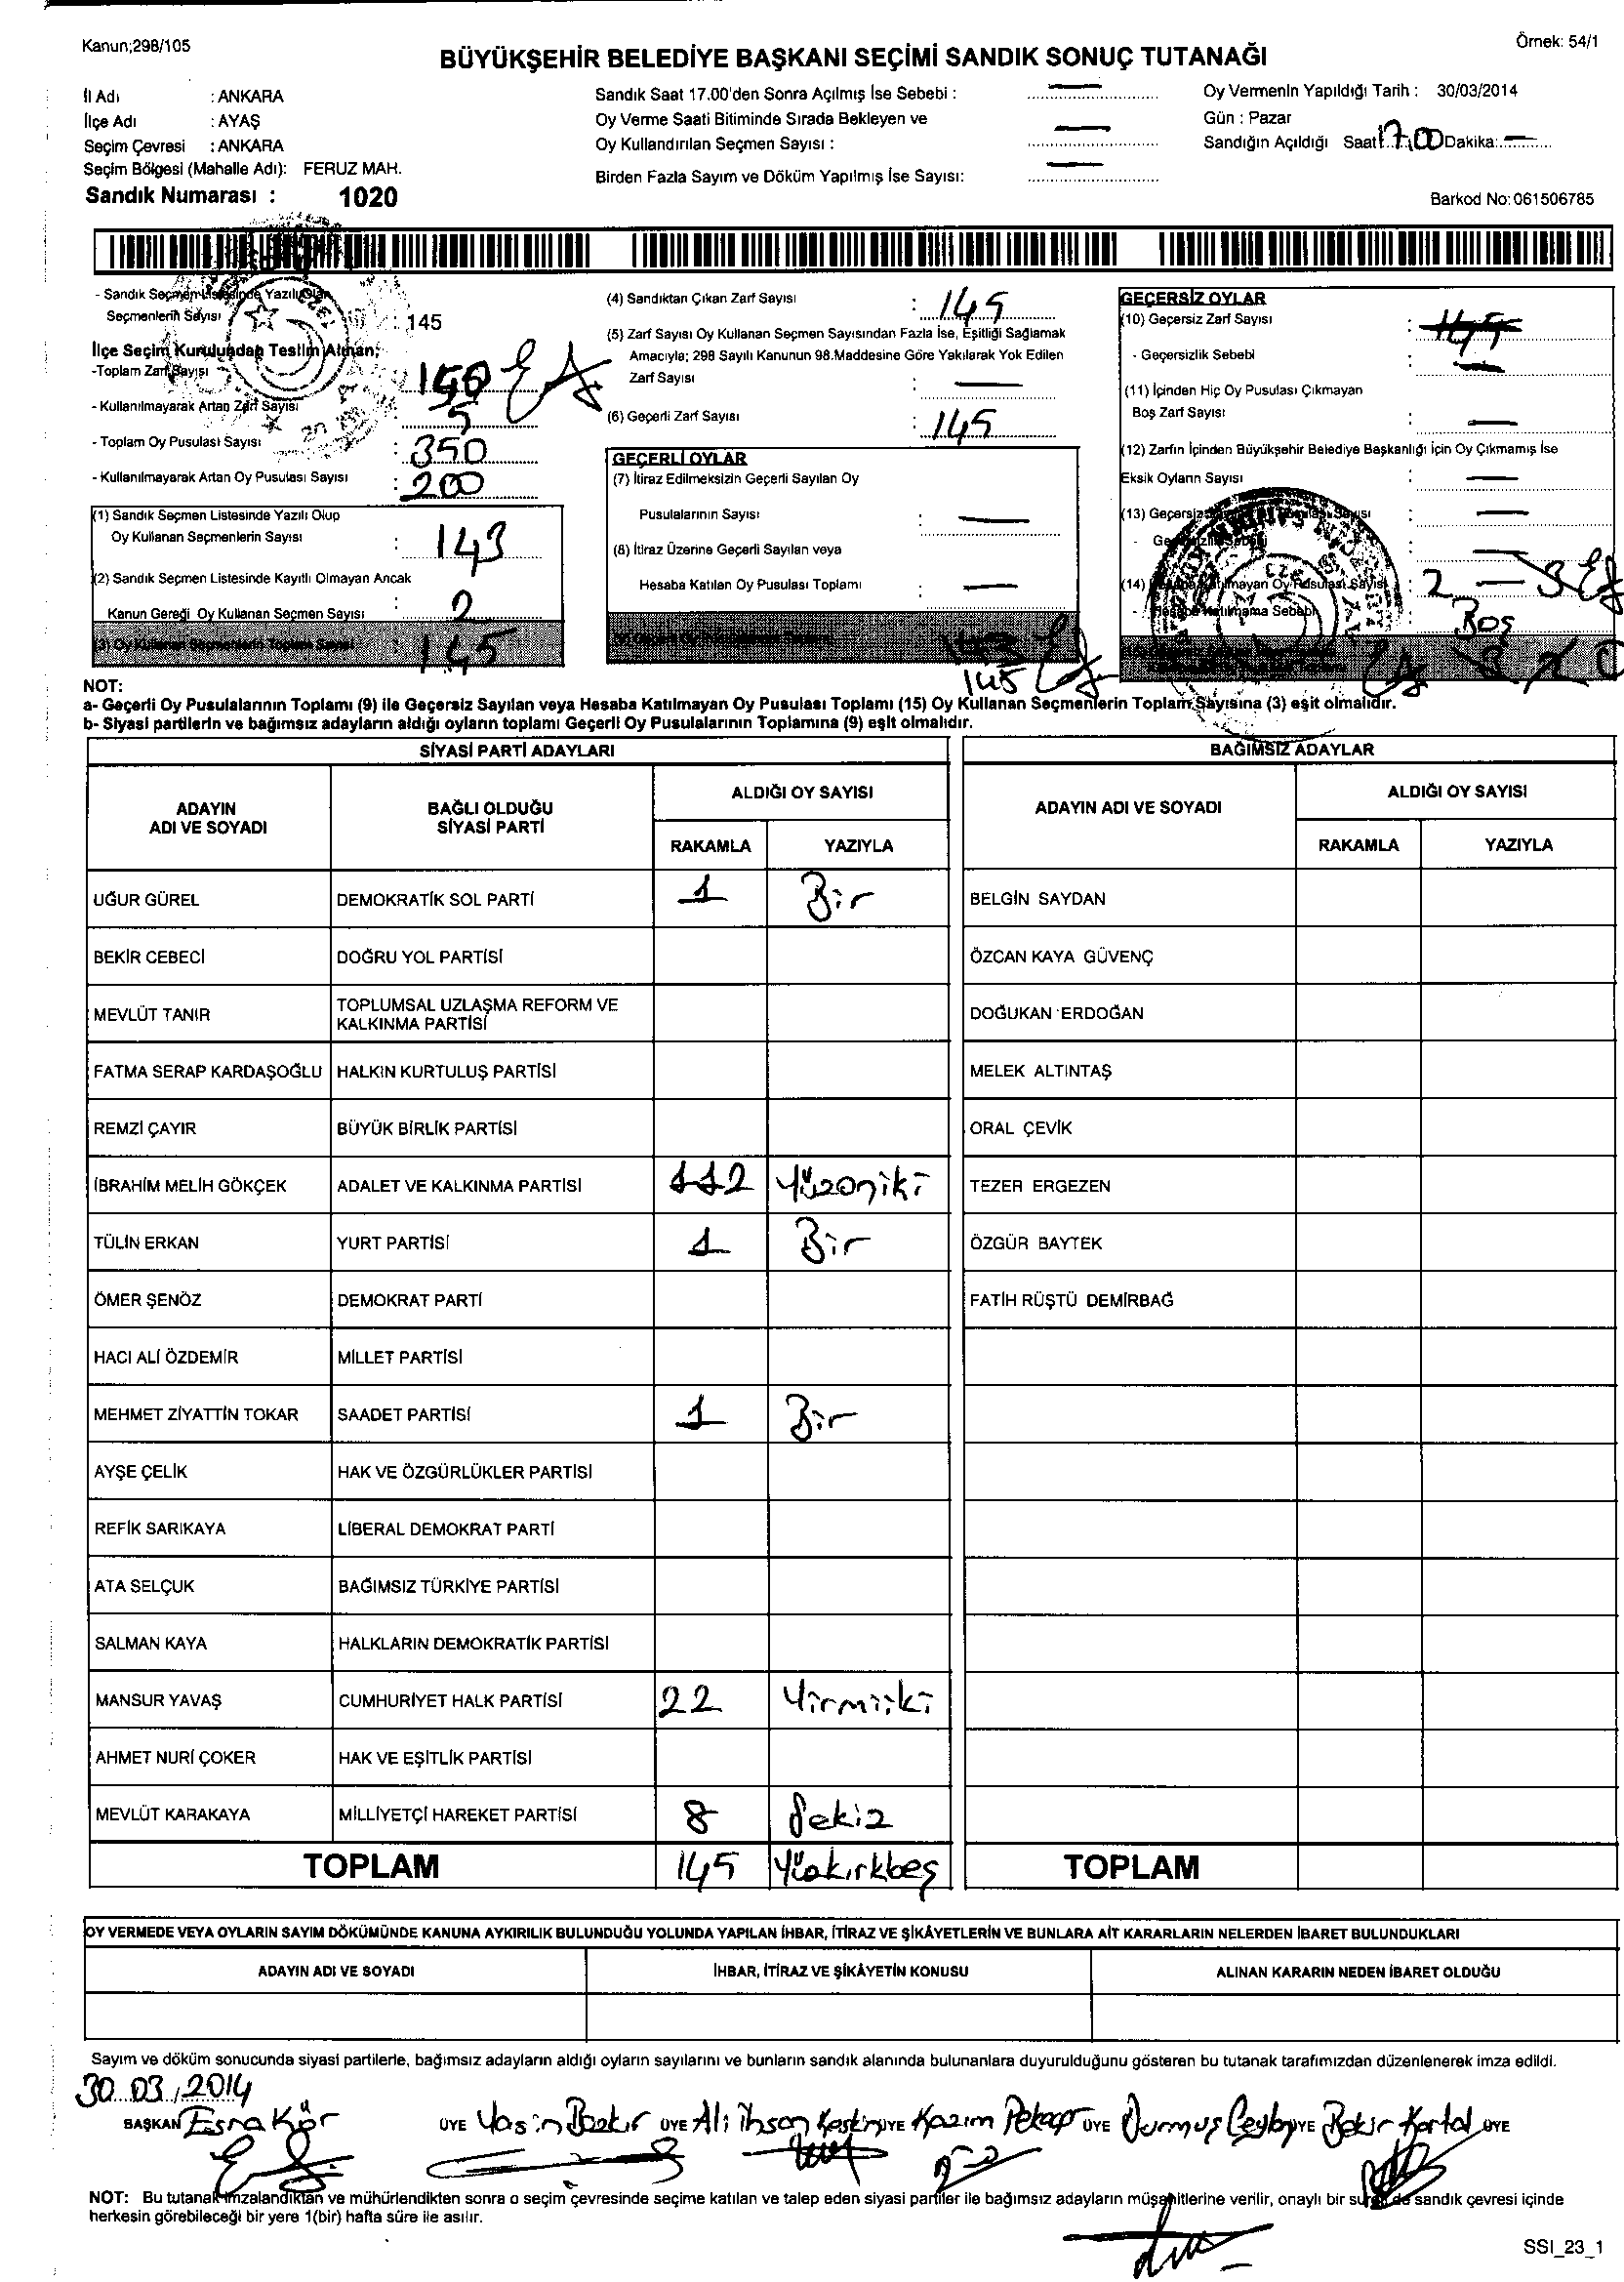 Kanun;298/105
Örnek: 54/1
BÜYÜKŞEHİR BELEDİYE BAŞKANI SEÇİMİ SANDIK SONUÇ TUTANAĞI
İl Adı : ANKARA
İlçe Adı : AYAŞ
Seçim Çevresi : ANKARA
Seçim Bölgesi (Mahalle Adı): FERUZ MAH.
Sandık Numarası : 1020
Sandık Saat 17.00'den Sonra Açılmış İse Sebebi : —
Oy Verme Saati Bitiminde Sırada Bekleyen ve
Oy Kullandırılan Seçmen Sayısı : —
Birden Fazla Sayım ve Döküm Yapılmış İse Sayısı: —
Oy Vermenin Yapıldığı Tarih : 30/03/2014
Gün : Pazar
Sandığın Açıldığı Saat 17.00 Dakika: —
Barkod No: 061506785
- Sandık Seçmen Listesinde Yazılı Olan
Seçmenlerin Sayısı : 145
İlçe Seçim Kurulundan Teslim Alınan;
-Toplam Zarf Sayısı : 150
- Kullanılmayarak Artan Zarf Sayısı : 5
- Toplam Oy Pusulası Sayısı : 350
- Kullanılmayarak Artan Oy Pusulası Sayısı : 200
(1) Sandık Seçmen Listesinde Yazılı Olup
Oy Kullanan Seçmenlerin Sayısı : 143
(2) Sandık Seçmen Listesinde Kayıtlı Olmayan Ancak
Kanun Gereği Oy Kullanan Seçmen Sayısı : 2
(3) Oy Kullanan Seçmenlerin Toplam Sayısı : 145
(4) Sandıktan Çıkan Zarf Sayısı : 145
(5) Zarf Sayısı Oy Kullanan Seçmen Sayısından Fazla İse, Eşitliği Sağlamak
Amacıyla; 298 Sayılı Kanunun 98.Maddesine Göre Yakılarak Yok Edilen
Zarf Sayısı : —
(6) Geçerli Zarf Sayısı : 145
GEÇERLİ OYLAR
(7) İtiraz Edilmeksizin Geçerli Sayılan Oy
Pusulalarının Sayısı : —
(8) İtiraz Üzerine Geçerli Sayılan veya
Hesaba Katılan Oy Pusulası Toplamı : —
145
GEÇERSİZ OYLAR
(10) Geçersiz Zarf Sayısı : 145
- Geçersizlik Sebebi —
(11) İçinden Hiç Oy Pusulası Çıkmayan
Boş Zarf Sayısı : —
(12) Zarfın İçinden Büyükşehir Belediye Başkanlığı İçin Oy Çıkmamış İse
Eksik Oyların Sayısı : —
(13) Geçersiz Sayısı : —
(14) Katılmayan Oy Pusulası Sayısı 2
- Hesaba Katılmama Sebebi Boş
NOT:
a- Geçerli Oy Pusulalarının Toplamı (9) ile Geçersiz Sayılan veya Hesaba Katılmayan Oy Pusulası Toplamı (15) Oy Kullanan Seçmenlerin Toplam Sayısına (3) eşit olmalıdır.
b- Siyasi partilerin ve bağımsız adayların aldığı oyların toplamı Geçerli Oy Pusulalarının Toplamına (9) eşit olmalıdır.
SİYASİ PARTİ ADAYLARI
ADAYIN ADI VE SOYADI BAĞLI OLDUĞU SİYASİ PARTİ ALDIĞI OY SAYISI
RAKAMLA YAZIYLA
UĞUR GÜREL DEMOKRATİK SOL PARTİ 1 Bir
BEKİR CEBECİ DOĞRU YOL PARTİSİ
MEVLÜT TANIR TOPLUMSAL UZLAŞMA REFORM VE
KALKINMA PARTİSİ
FATMA SERAP KARDAŞOĞLU HALKIN KURTULUŞ PARTİSİ
REMZİ ÇAYIR BÜYÜK BİRLİK PARTİSİ
İBRAHİM MELİH GÖKÇEK ADALET VE KALKINMA PARTİSİ 112 Yüzoniki
TÜLİN ERKAN YURT PARTİSİ 1 Bir
ÖMER ŞENÖZ DEMOKRAT PARTİ
HACI ALİ ÖZDEMİR MİLLET PARTİSİ
MEHMET ZİYATTİN TOKAR SAADET PARTİSİ 1 Bir
AYŞE ÇELİK HAK VE ÖZGÜRLÜKLER PARTİSİ
REFİK SARIKAYA LİBERAL DEMOKRAT PARTİ
ATA SELÇUK BAĞIMSIZ TÜRKİYE PARTİSİ
SALMAN KAYA HALKLARIN DEMOKRATİK PARTİSİ
MANSUR YAVAŞ CUMHURİYET HALK PARTİSİ 22 Yirmiiki
AHMET NURİ ÇOKER HAK VE EŞİTLİK PARTİSİ
MEVLÜT KARAKAYA MİLLİYETÇİ HAREKET PARTİSİ 8 Sekiz
TOPLAM 145 Yüzkırkbeş
BAĞIMSIZ ADAYLAR
ADAYIN ADI VE SOYADI ALDIĞI OY SAYISI
RAKAMLA YAZIYLA
BELGİN SAYDAN
ÖZCAN KAYA GÜVENÇ
DOĞUKAN ERDOĞAN
MELEK ALTINTAŞ
ORAL ÇEVİK
TEZER ERGEZEN
ÖZGÜR BAYTEK
FATİH RÜŞTÜ DEMİRBAĞ
TOPLAM
OY VERMEDE VEYA OYLARIN SAYIM DÖKÜMÜNDE KANUNA AYKIRILIK BULUNDUĞU YOLUNDA YAPILAN İHBAR, İTİRAZ VE ŞİKÂYETLERİN VE BUNLARA AİT KARARLARIN NELERDEN İBARET BULUNDUKLARI
ADAYIN ADI VE SOYADI İHBAR, İTİRAZ VE ŞİKÂYETİN KONUSU ALINAN KARARIN NEDEN İBARET OLDUĞU
Sayım ve döküm sonucunda siyasi partilerle, bağımsız adayların aldığı oyların sayılarını ve bunların sandık alanında bulunanlara duyurulduğunu gösteren bu tutanak tarafımızdan düzenlenerek imza edildi.
30.03.2014
BAŞKAN Esra Kör ÜYE Yasin Bakır ÜYE Ali İhsan Keskin ÜYE Kazım Pekap ÜYE Durmuş Ceylan ÜYE Bekir Kartal ÜYE
NOT: Bu tutanak imzalandıktan ve mühürlendikten sonra o seçim çevresinde seçime katılan ve talep eden siyasi partiler ile bağımsız adayların müşahitlerine verilir, onaylı bir sureti de sandık çevresi içinde
herkesin görebileceği bir yere 1(bir) hafta süre ile asılır.
SSI_23_1